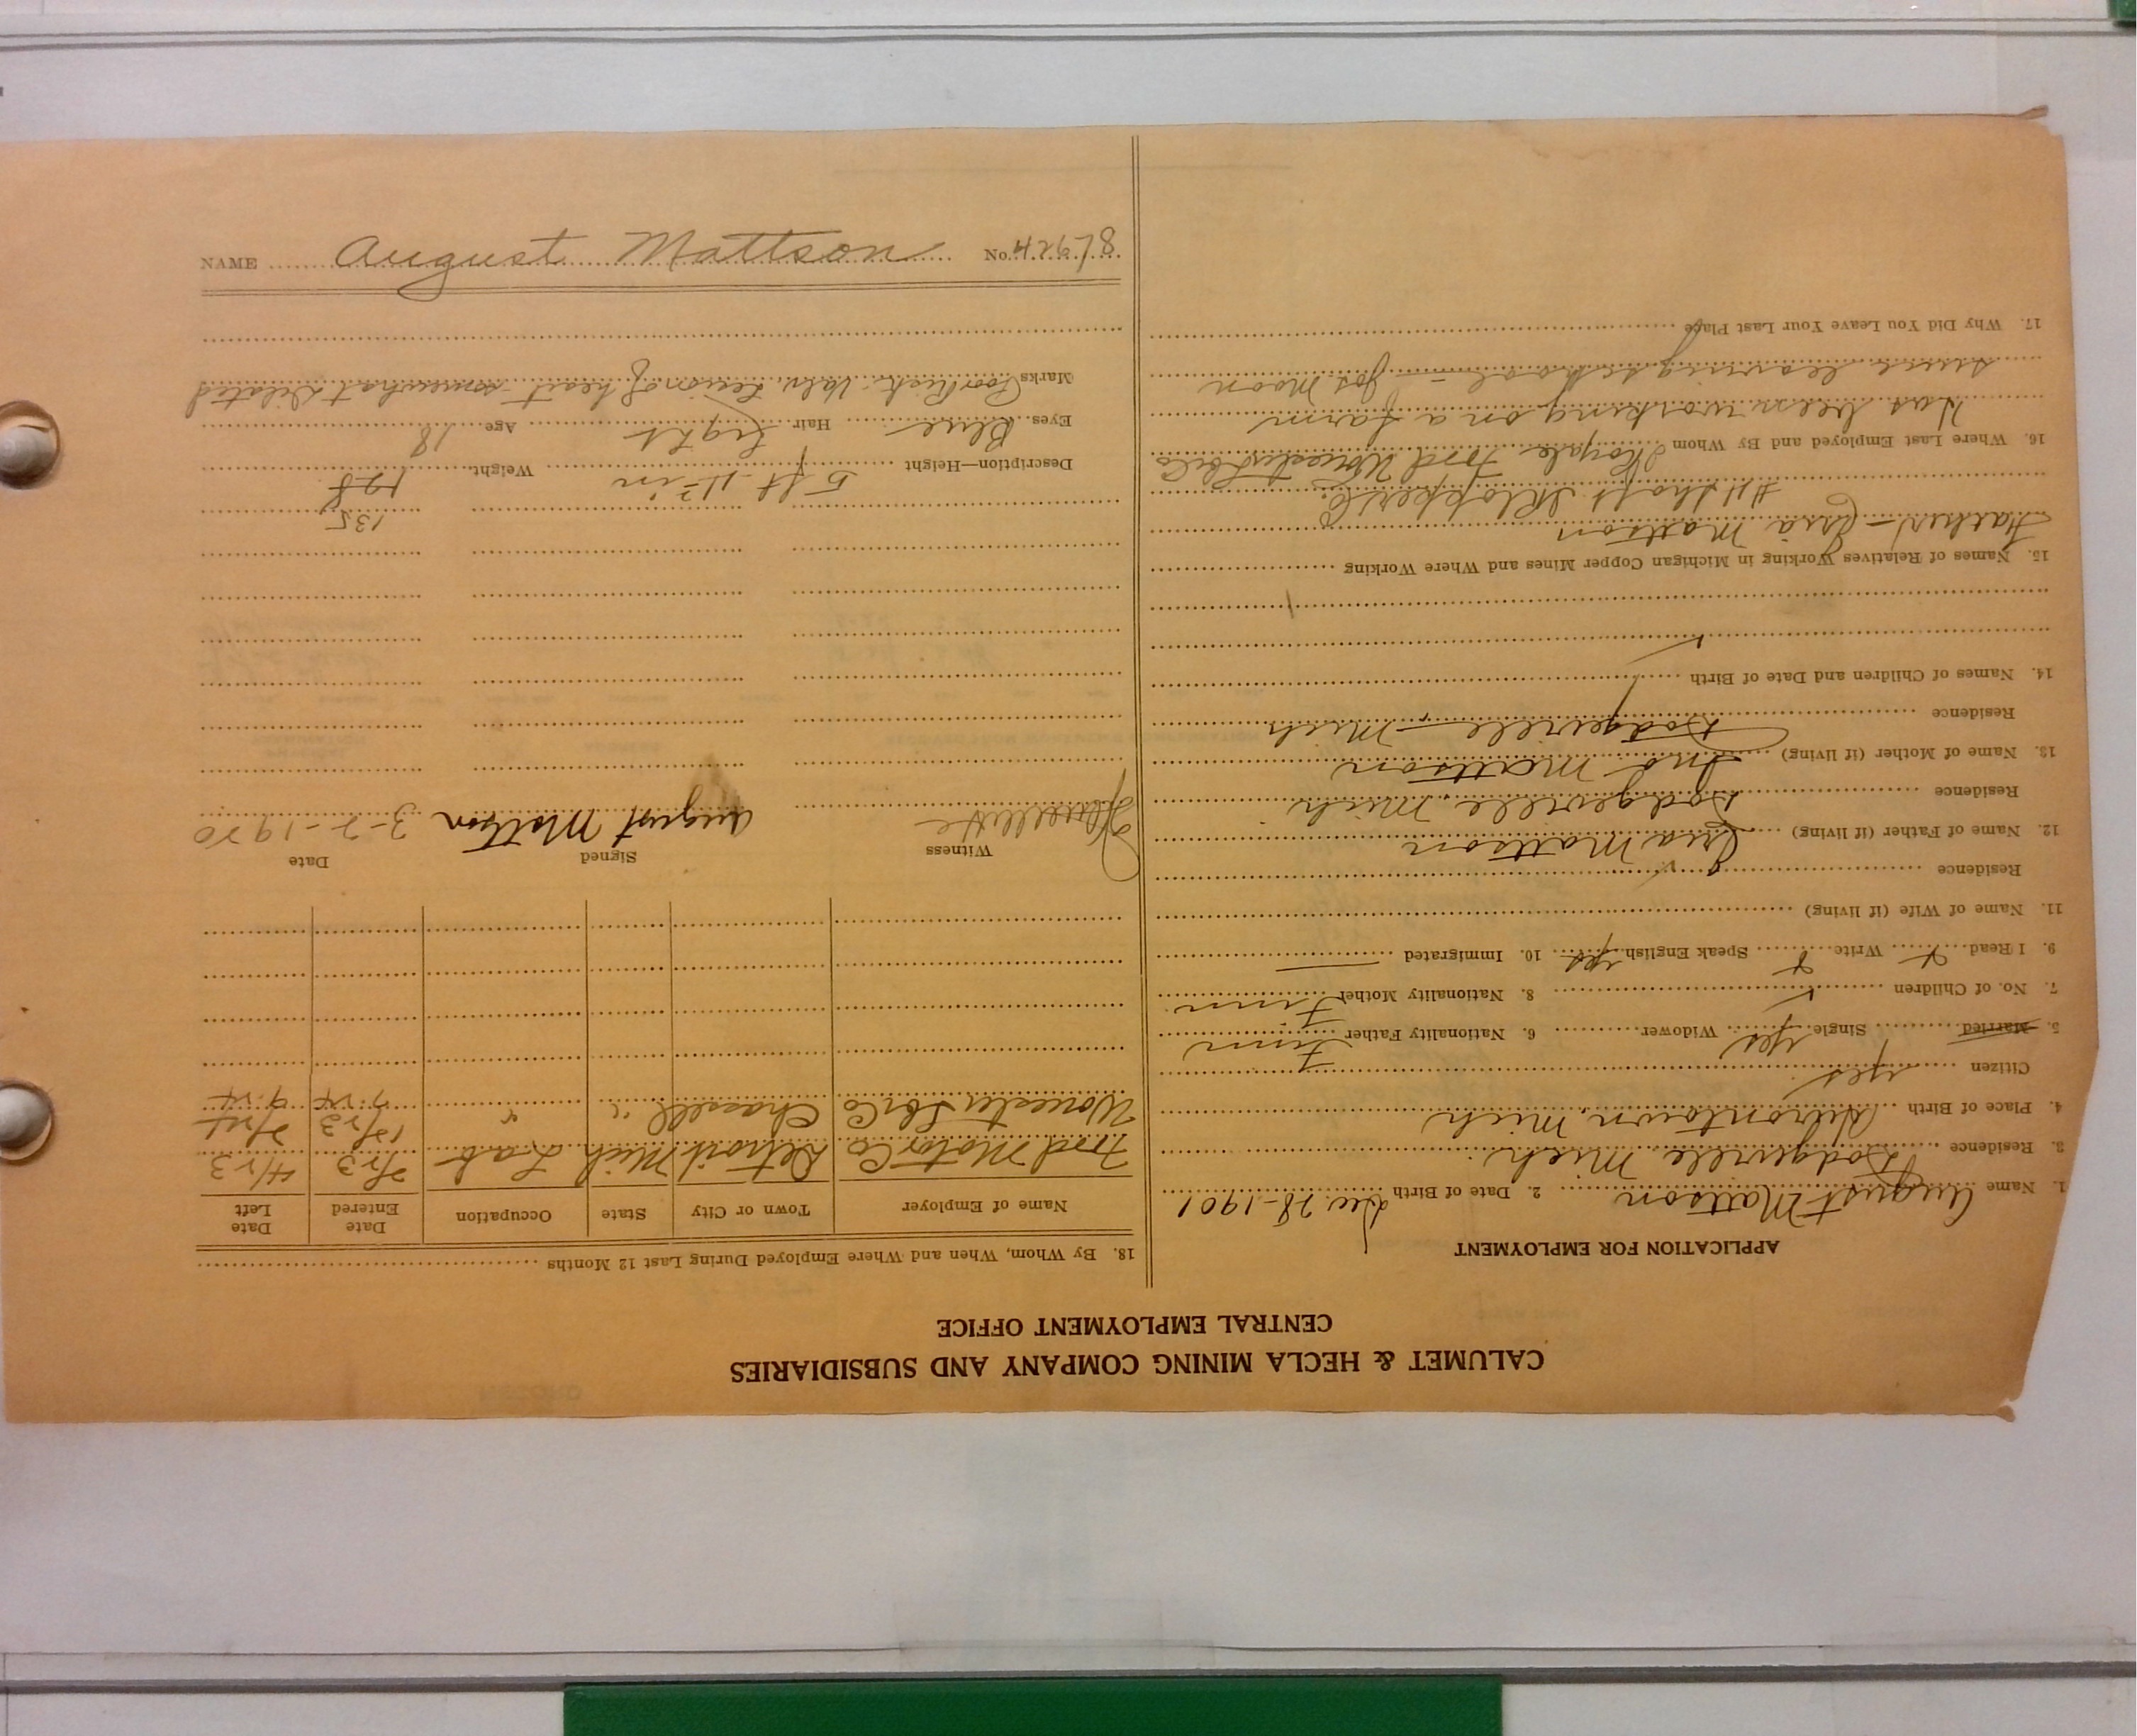 CALUMET & HECLA MINING COMPANY AND SUBSIDIARIES
CENTRAL EMPLOYMENT OFFICE
APPLICATION FOR EMPLOYMENT
1. Name August Mattson 2. Date of Birth Dec. 28-1901
3. Residence Dodgeville Mich.
4. Place of Birth Hurontown, Mich
Citizen yes
5. Married Single yes Widower 6. Nationality Father Finn
7. No. of Children 8. Nationality Mother Finn
9. I Read Write Speak English yes 10. Immigrated
11. Name of Wife (if living)
Residence
12. Name of Father (if living) Mattson
Residence Dodgeville, Mich
13. Name of Mother (if living) Mattson
Residence Dodgeville - Mich
14. Names of Children and Date of Birth
15. Names of Relatives Working in Michigan Copper Mines and Where Working
Father - Mattson
Shaft
16. Where Last Employed and By Whom Ford Worcester Lbr Co
Has been working on a farm
since leaving school - Jos Moon
17. Why Did You Leave Your Last Place
18. By Whom, When and Where Employed During Last 12 Months
Name of Employer Town or City State Occupation Date Entered Date Left
Ford Motor Co Detroit Mich Lab 2/23 4/23
12/23
Worcester Lbr Co Chassell " " 7-24 9-24
Witness Signed Date
August Mattson 3-2-1920
135
128
Description—Height 5 ft - 11 1/2 in Weight
Eyes Blue Hair Light Age 18
Marks Poor Risk. Valv. Lesion of heart - somewhat dilated
NAME August Mattson No. 42678